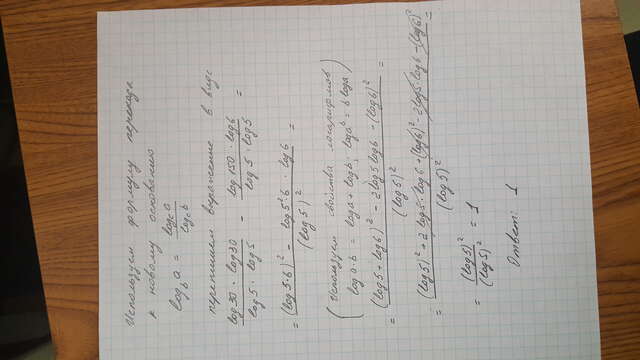 Используем формулу перехода
к новому основанию
log_b a = log_c a / log_c b
перепишем выражение в виде
(log30 · log30) / (log5 · log5) - (log150 · log6) / (log5 · log5) =
= ((log5·6)² - log5²·6 · log6) / (log5)² =
(Используем свойства логарифмов
log a·b = log a + log b; log a^b = b log a)
= ((log5 + log6)² - 2log5log6 - (log6)²) / (log5)² =
= ((log5)² + 2log5·log6 + (log6)² - 2log5·log6 - (log6)²) / (log5)² =
= (log5)² / (log5)² = 1
Ответ: 1